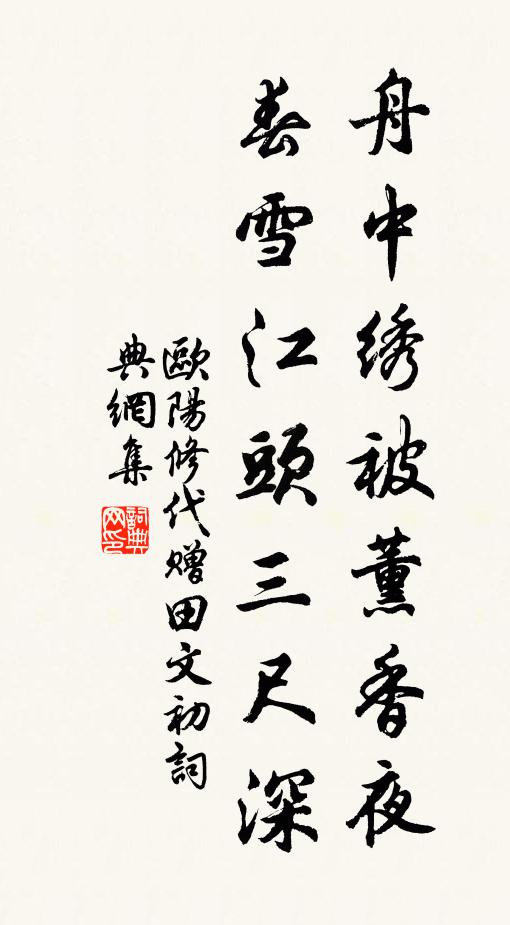 舟中绣被薰香夜
春雪江頭三尺深
歐陽修代赠田文初詞
典網集
詞典网印